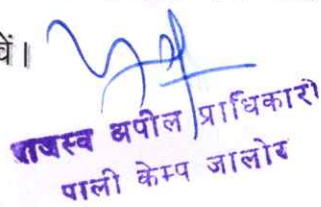 वें।
राजस्व अपील प्राधिकारी
पाली केम्प जालोर